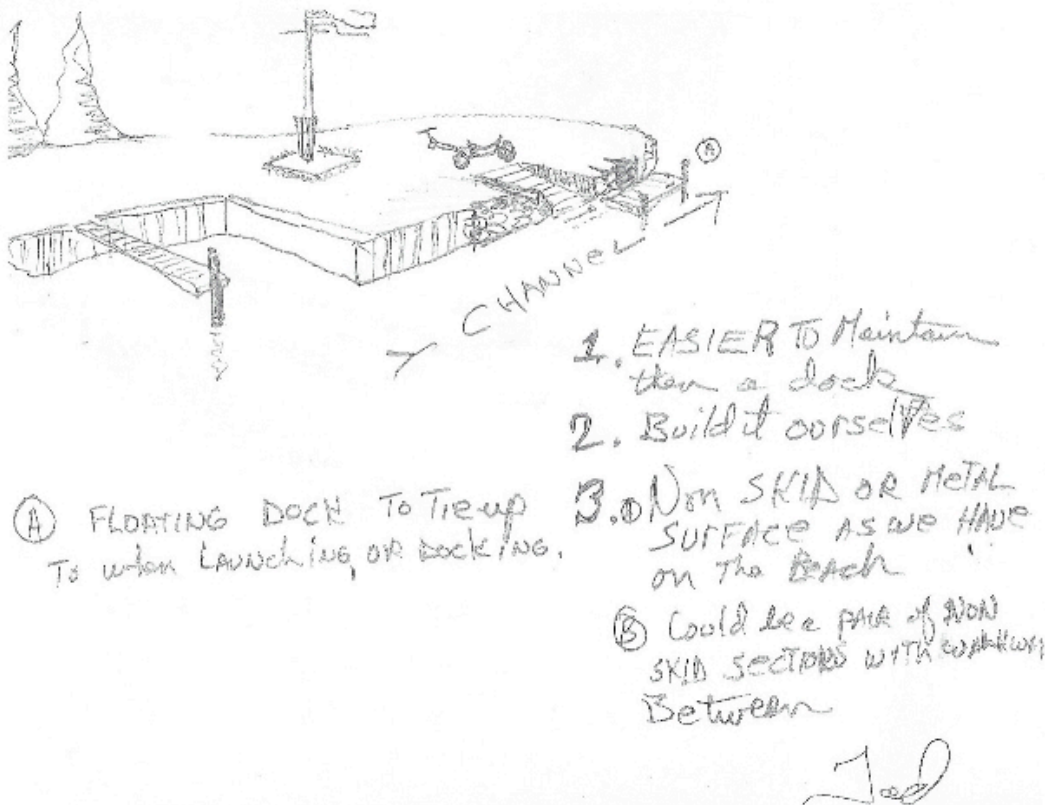 A
CHANNEL
1. EASIER TO Maintain
then a dock
2. Build it ourselves
3. Non SKID OR METAL
SURFACE AS WE HAVE
on The BEACH
B Could be a PAIR of NON
SKID SECTIONS WITH WALKWAY
Between
A FLOATING DOCK To Tie up
To when LAUNCHING, OR DOCKING.
Ted